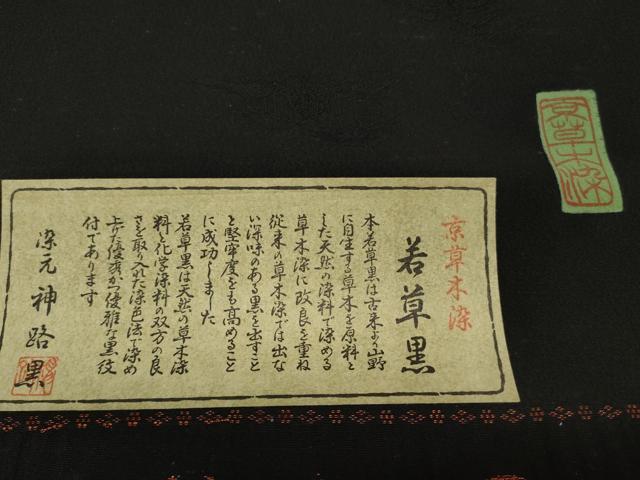 京草木染
若草黒
本若草黒は古来より山野
に自生する草木を原料と
した天然の染料で染める
草木染に改良を重ね
従来の草木染では出な
い深味のある黒を出すこと
と堅牢度をも高めること
に成功しました
若草黒は天然の草木染
料と化学染料の双方の良
さを取り入れた染色法で染め
上げた優秀かつ優雅な黒紋
付であります
染元神路黒
京草木染